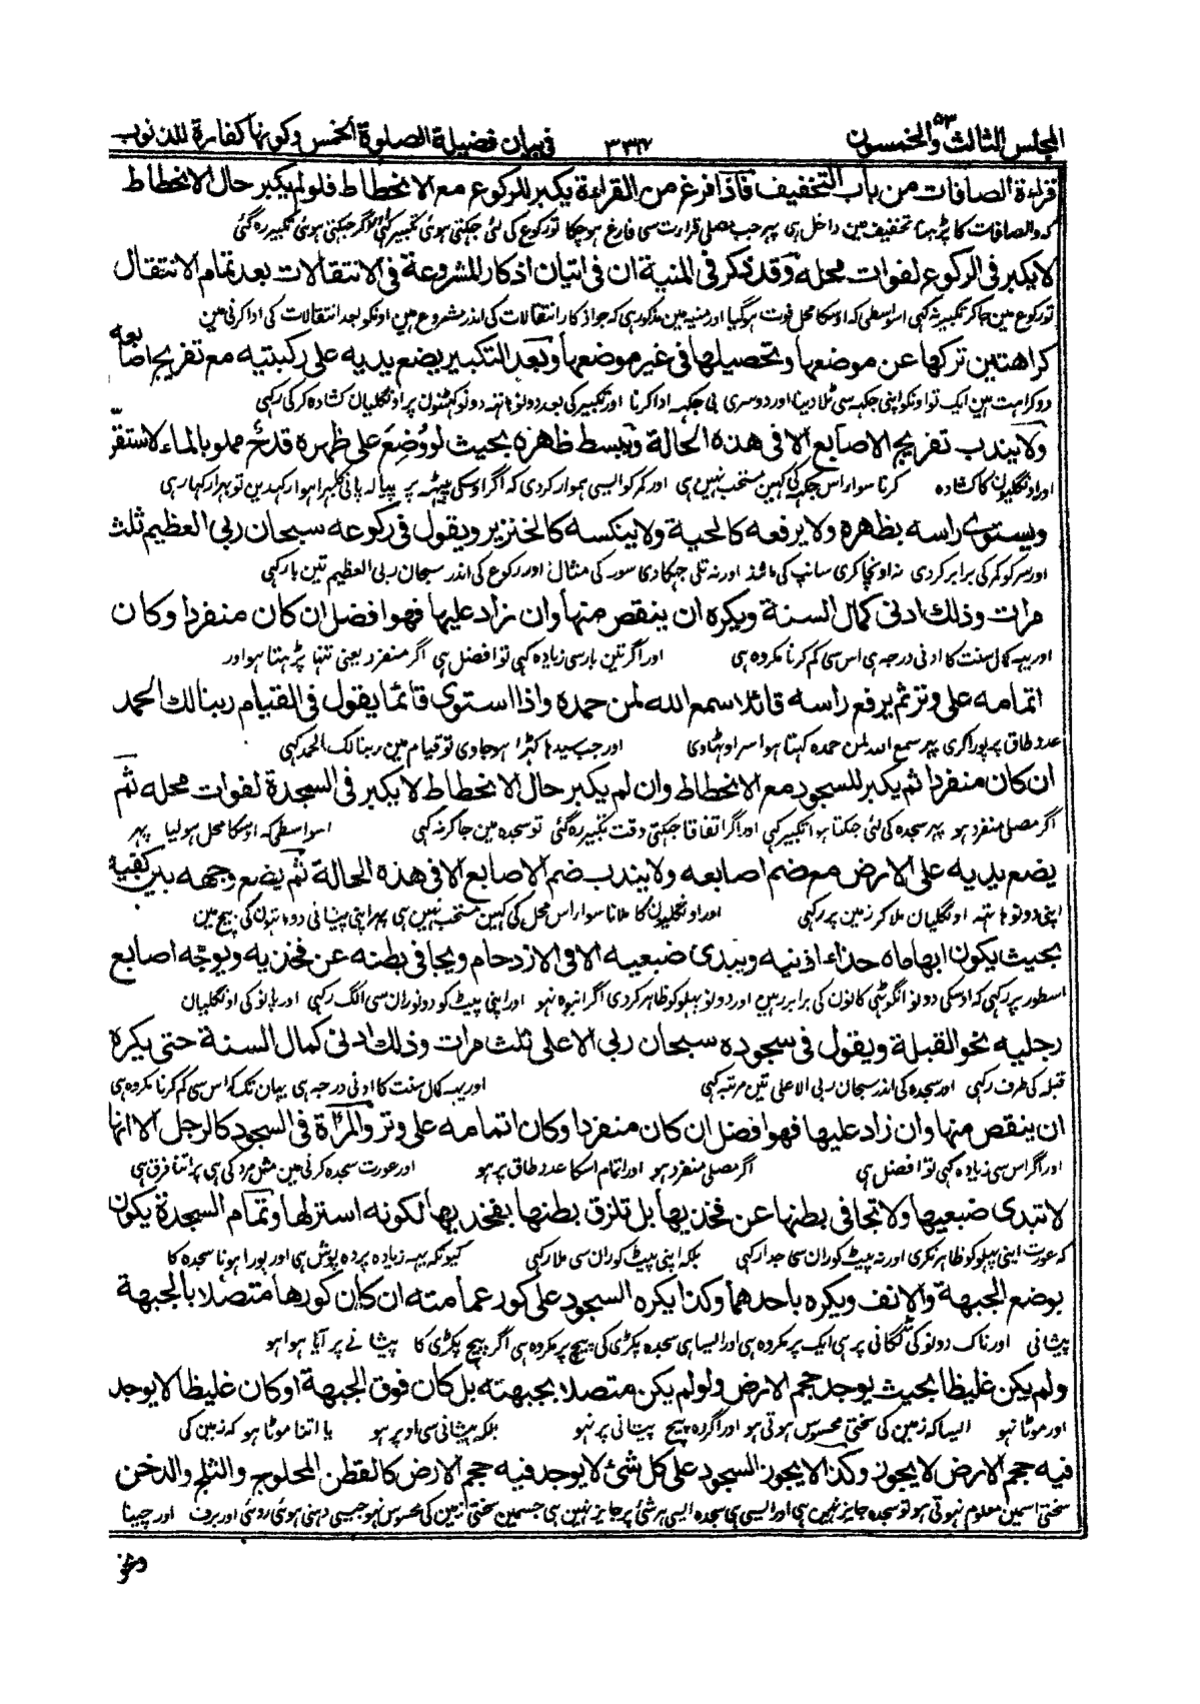 المجلس الثالث والخمسون ۵۳ ۳۳۷ في بيان فضيلة الصلوة الخمس وكونها كفارة للذنوب
قراءة الصافات من باب التخفيف فاذا فرغ من القراءة يكبر للركوع مع الانحطاط فلو لم يكبر حال الانحطاط
که والصافات کا پڑہنا تخفیف مین داخل ہی پہر جب مصلی قرارت سی فارغ ہو چکا تو رکوع کی لئی جہکتی ہوئی تکبیر کہی اگر جہکتی ہوئی تکبیر رہ گئی
لا يكبر في الركوع لفوات محله وقد ذكر في المنية ان في اتيان اذكار المشروعة في الانتقالات بعد تمام الانتقال
تو رکوع مین جا کر تکبیر نہ کہی اسواسطی کہ اوسکا محل فوت ہو گیا اور منیہ مین مذکور ہی کہ جو اذکار انتقالات کی اندر مشروع مین اونکو بعد انتقالات کی ادا کرنی مین
كراهتين تركها عن موضعها وتحصيلها في غير موضعها وبعد التكبير يضع يديه على ركبتيه مع تفريج اصابعه
دو کراہت مین ایک تو اونکو اپنی جکہہ سی ٹلا دینا اور دوسری بی جکہہ ادا کرنا اور تکبیر کی بعد دونو ہاتہہ دونو کہٹنون پر اونگلیان کشادہ کر کی رکہی
ولا يندب تفريج الاصابع الا في هذه الحالة ويبسط ظهره بحيث لو وُضِعَ على ظهره قدح مملو بالماء لاستقرّ
اور اونگلیون کا کشادہ کرنا سوا اس جکہہ کی کہین مستحب نہین ہی اور کمر کو ایسی ہموار کردی کہ اگر اوسکی پیٹہہ پر پیالہ پانی کا بہرا ہوا رکہدین تو بہرا رکہا رہی
ويستوي راسه بظهره ولا يرفعه كالحية ولا ينكسه كالخنزير ويقول في ركوعه سبحان ربي العظيم ثلث
اور سر کو کمر کی برابر کردی نہ اونچا کری سانپ کی مانند اور نہ تلی جہکا دی سور کی مثال اور رکوع کی اندر سبحان ربی العظیم تین بار کہی
مرات وذلك ادنى كمال السنة ويكره ان ينقص منها وان زاد عليها فهو افضل ان كان منفردا وكان
اور یہہ کمال سنت کا ادنی درجہ ہی اس سی کم کرنا مکروہ ہی اور اگر تین بار سی زیادہ کہی تو افضل ہی اگر منفرد یعنی تنہا پڑہتا ہو اور
اتمامه على وتر ثم يرفع راسه قائلا سمع الله لمن حمده واذا استوى قائما يقول في القيام ربنا لك الحمد
عدد طاق پر پورا کری پہر سمع اللہ لمن حمدہ کہتا ہوا سر اوٹہاوی اور جب سیدہا کہڑا ہو جاوی تو قیام مین ربنا لک الحمد کہی
ان كان منفردا ثم يكبر للسجود مع الانحطاط وان لم يكبر حال الانحطاط لا يكبر في السجدة لفوات محله ثم
اگر مصلی منفرد ہو پہر سجدہ کی لئی جہکتا ہوا تکبیر کہی اور اگر اتفاقا جہکتی وقت تکبیر رہ گئی تو سجدہ مین جا کر نہ کہی اسواسطی کہ اوسکا محل ہولیا پہر
يضع يديه على الارض مع ضم اصابعه ولا يندب ضم الاصابع الا في هذه الحالة ثم يضع وجهه بين كفيه
اپنی دونو ہاتہہ اونگلیان ملا کر زمین پر رکہی اور اونگلیون کا ملانا سوا اس محل کی کہین مستحب نہین ہی پہر اپنی پیشانی دو ہاتہون کی بیچ مین
بحيث يكون ابهاماه حذاء اذنيه ويبدى ضبعيه الا في الازدحام ويجافي بطنه عن فخذيه ويوجّه اصابع
اسطور پر رکہی کہ اوسکی دونو انگوٹہی کانون کی برابر رہین اور دونو پہلو کو ظاہر کردی اگر انبوہ نہو اور اپنی پیٹ کو دونو ران سی الگ رکہی اور پانو کی اونگلیان
رجليه نحو القبلة ويقول في سجوده سبحان ربي الاعلى ثلث مرات وذلك ادنى كمال السنة حتى يكره
قبلہ کی طرف رکہی اور سجدہ کی اندر سبحان ربی الاعلی تین مرتبہ کہی اور یہہ کمال سنت کا ادنی درجہ ہی یہان تک کہ اس سی کم کرنا مکروہ ہی
ان ينقص منها وان زاد عليها فهو افضل ان كان منفردا وكان اتمامه على وتر والمرأة في السجود كالرجل الا انها
اور اگر اس سی زیادہ کہی تو افضل ہی اگر مصلی منفرد ہو اور اتمام اسکا عدد طاق پر ہو اور عورت سجدہ کرنی مین مثل مرد کی ہی پر اتنا فرق ہی
لا تبدى ضبعيها ولا تجافي بطنها عن فخذيها بل تلزق بطنها بفخذيها لكونه استر لها وتمام السجدة يكون
کہ عورت اپنی پہلو کو ظاہر نکری اور نہ پیٹ کو ران سی جدا رکہی بلکہ اپنی پیٹ کو ران سی ملا رکہی کیونکہ یہہ زیادہ پردہ پوش ہی اور پورا ہونا سجدہ کا
بوضع الجبهة والانف ويكره باحدهما وكذا يكره السجود على كور عمامته ان كان كورها متصلا بالجبهة
پیشانی اور ناک دونو کی لگانی پر ہی ایک پر مکروہ ہی اور ایسا ہی سجدہ پکڑی کی پیچ پر مکروہ ہی اگر پیچ پکڑی کا پیشانے پر آیا ہوا ہو
ولم يكن غليظا بحيث يوجد حجم الارض ولو لم يكن متصلا بجبهته بل كان فوق الجبهة او كان غليظا لا يوجد
اور موٹا نہو ایسا کہ زمین کی سختی محسوس ہوتی ہو اور اگر وہ پیچ پیشانی پر نہو بلکہ پیشانی سی اوپر ہو یا اتنا موٹا ہو کہ زمین کی
فيه حجم الارض لا يجوز وكذا لا يجوز السجود على كل شئ لا يوجد فيه حجم الارض كالقطن المحلوج والثلج والدخن
سختی اسمین معلوم نہوتی ہو تو سجدہ جایز نہین ہی اور ایسی ہی سجدہ ایسی ہر شئ پر جایز نہین ہی جسمین سختی زمین کی محسوس نہو جیسی دہنی ہوئی روئی اور برف اور چینا